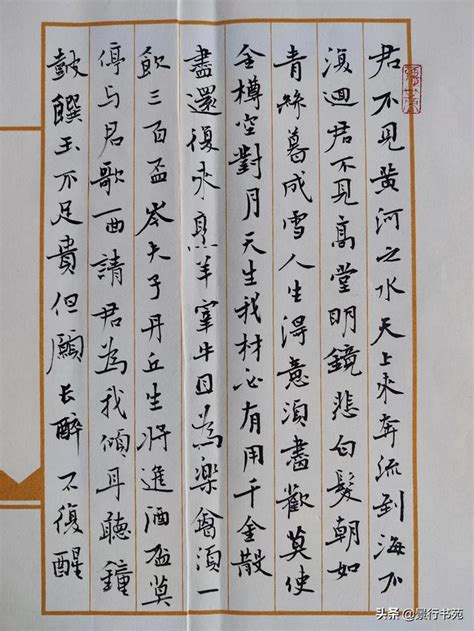 君不見黃河之水天上來奔流到海不
復迴君不見高堂明鏡悲白髮朝如
青絲暮成雪人生得意須盡歡莫使
金樽空對月天生我材必有用千金散
盡還復來烹羊宰牛且為樂會須一
飲三百盃岑夫子丹丘生將進酒盃莫
停与君歌一曲請君為我傾耳聽鐘
鼓饌玉不足貴但願長醉不復醒
头条 @景行书苑